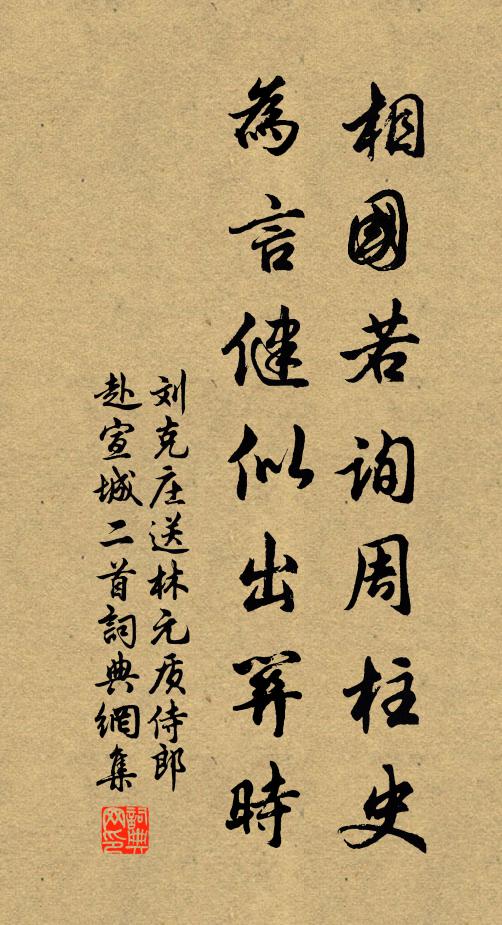 相國若詢周柱史
為言健似出關時
刘克庄送林元质侍郎
赴宣城二首詞典網集
詞典網印